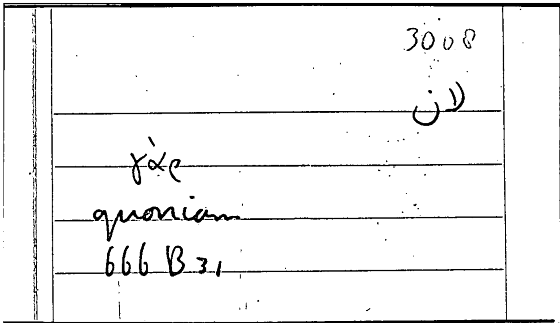 3008
لان
γὰρ
quoniam
666 B 31